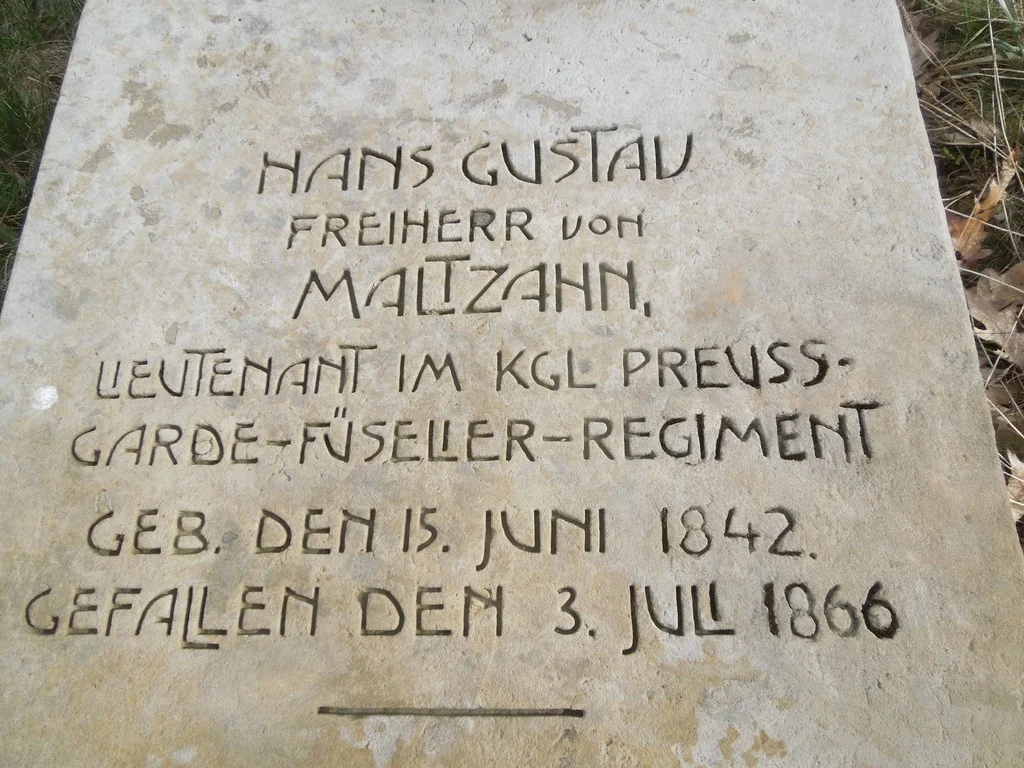 HANS GUSTAV
FREIHERR VON
MALTZAHN,
LIEUTENANT IM KGL PREUSS-
GARDE-FÜSELIER-REGIMENT
GEB. DEN 15. JUNI 1842.
GEFALLEN DEN 3. JULI 1866